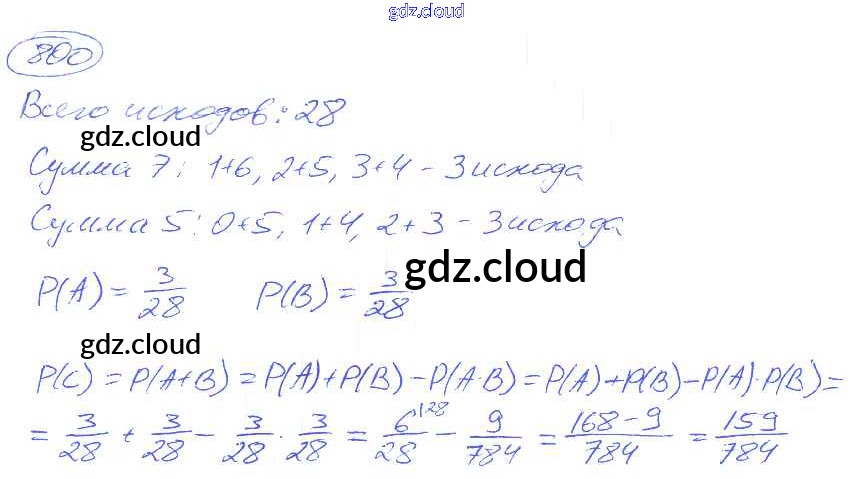 gdz.cloud
800
Всего исходов: 28
gdz.cloud
Сумма 7: 1+6, 2+5, 3+4 - 3 исхода
Сумма 5: 0+5, 1+4, 2+3 - 3 исхода
gdz.cloud
P(A) = 3/28 P(B) = 3/28
gdz.cloud
P(C) = P(A+B) = P(A)+P(B)-P(A·B) = P(A)+P(B)-P(A)·P(B) =
= 3/28 + 3/28 - 3/28 · 3/28 = 6/28 ^(28 - 9/784 = 168-9/784 = 159/784